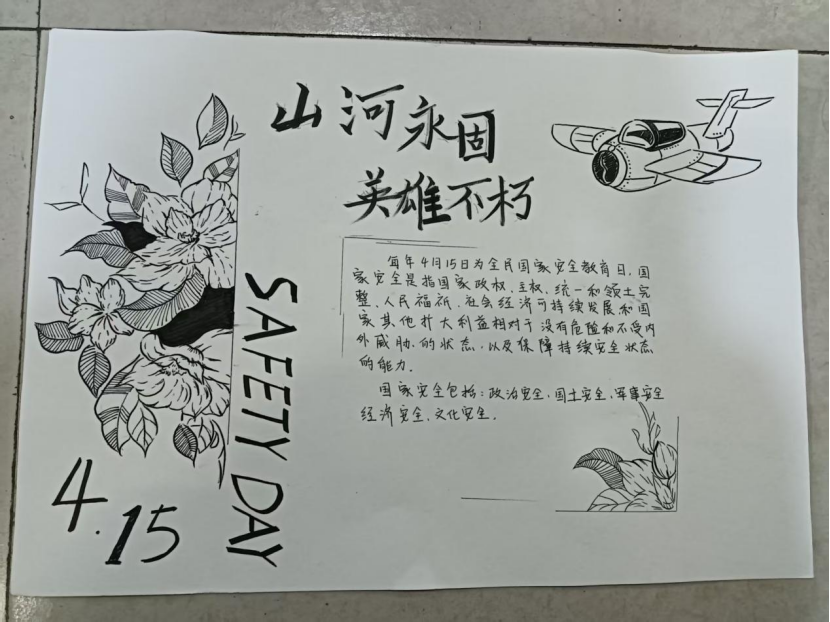 山河永固
英雄不朽
每年4月15日为全民国家安全教育日,国
家安全是指国家政权、主权、统一和领土完
整、人民福祇、社会经济可持续发展和国
家其他扩大利益相对于没有危险和不受内
外威胁的状态,以及保障持续安全状态
的能力。
国家安全包括:政治安全、国土安全、军事安全
经济安全、文化安全。
SAFETY DAY
4.15